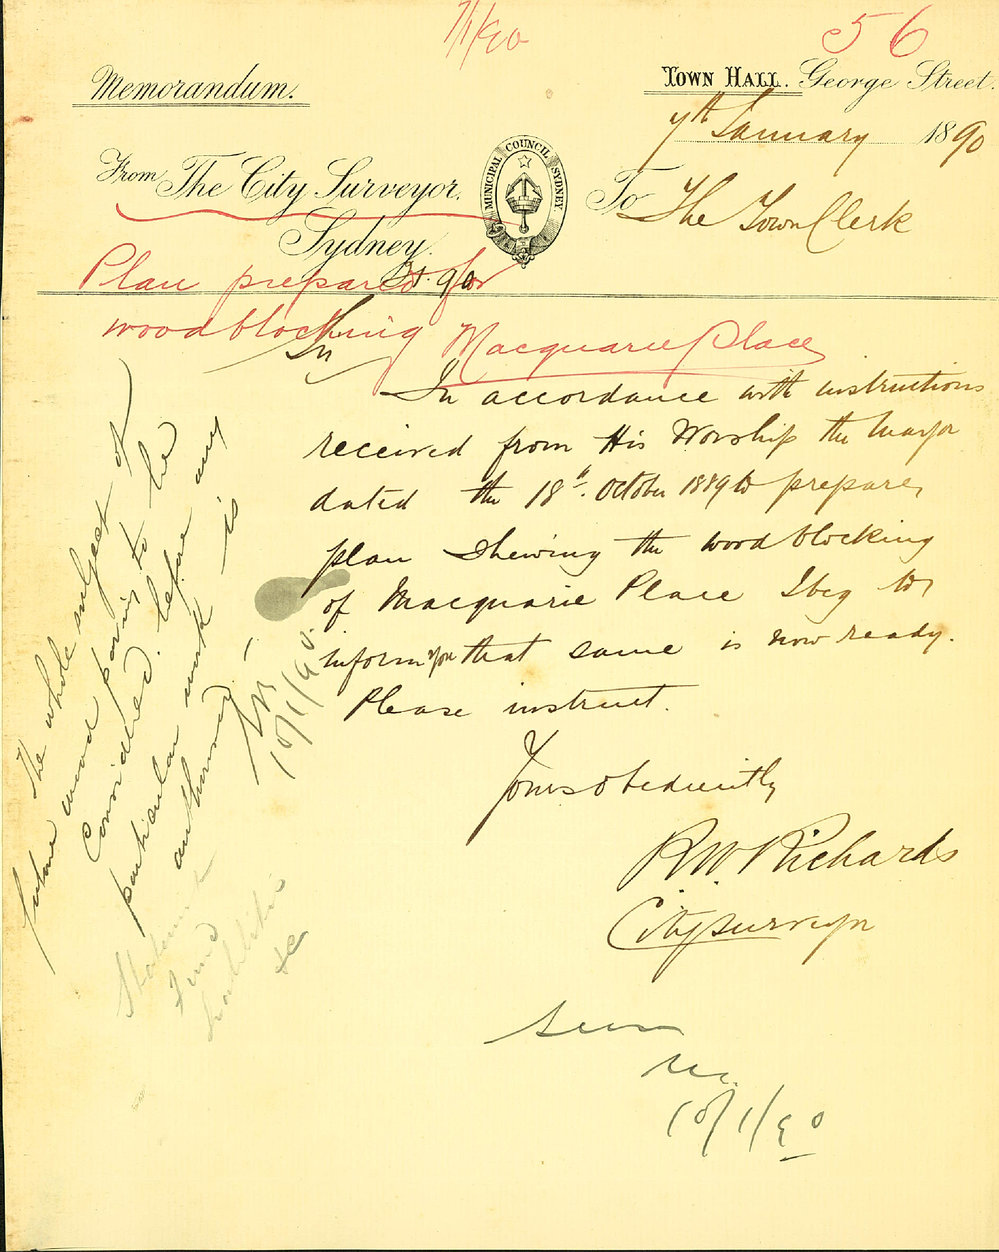 7/1/90
56
Memorandum.
TOWN HALL. George Street.
7th January 1890
From The City Surveyor.
Sydney.
MUNICIPAL COUNCIL SYDNEY.
To The Town Clerk
Plan prepared for
woodblocking Macquarie Place
In accordance with instructions
received from His Worship the Mayor
dated the 18th. October 1889 to prepare
plan shewing the woodblocking
of Macquarie Place I beg to
inform you that same is now ready.
Please instruct.
Yours obediently
R W Richards
City Surveyor
The whole subject of
future wood paving to be
considered before any
particular work is
authorised.
10/1/90.
Statement
Fund
&c
Seen
10/1/90